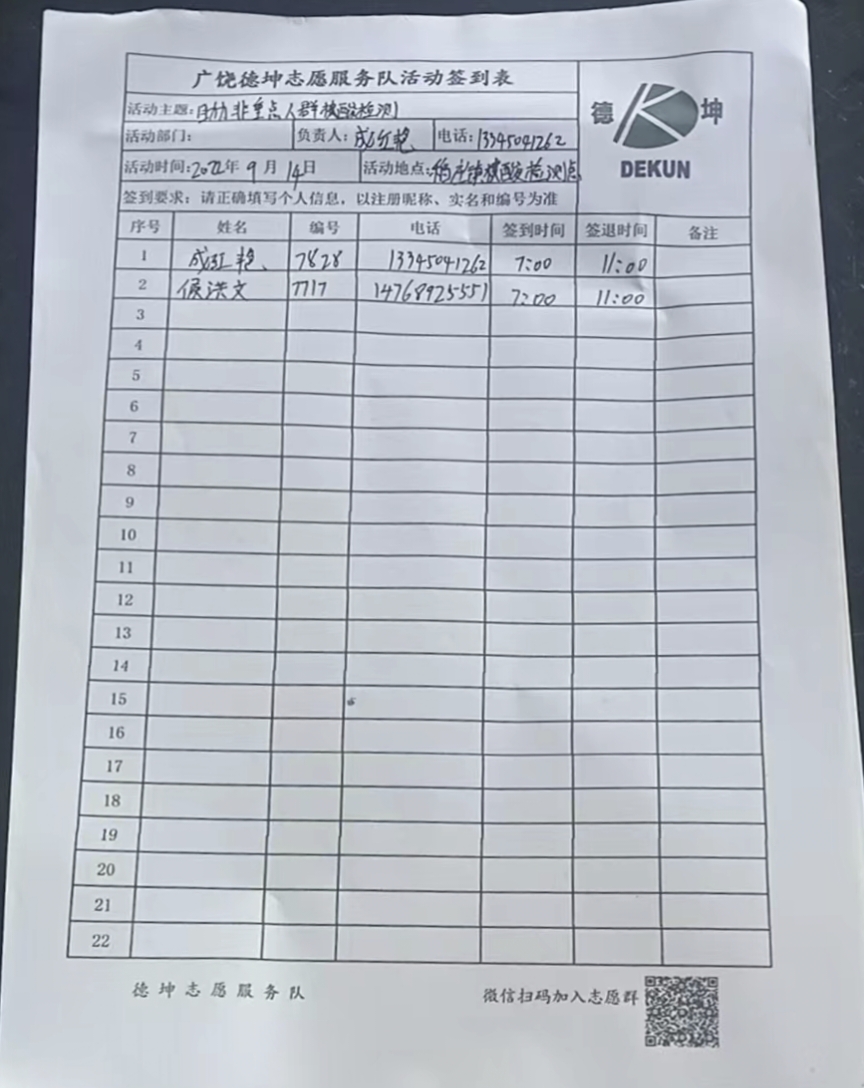 广饶德坤志愿服务队活动签到表
德 坤
DEKUN
活动主题:协助非重点人群核酸检测
活动部门: 负责人:成红艳 电话:13345041262
活动时间:2022年 9 月 14日 活动地点:核酸检测点
签到要求:请正确填写个人信息,以注册昵称、实名和编号为准
序号 姓名 编号 电话 签到时间 签退时间 备注
1 成红艳、 7828 13345041262 7:00 11:00
2 侯洪文 7717 14768925551 7:00 11:00
3
4
5
6
7
8
9
10
11
12
13
14
15
16
17
18
19
20
21
22
德坤志愿服务队 微信扫码加入志愿群